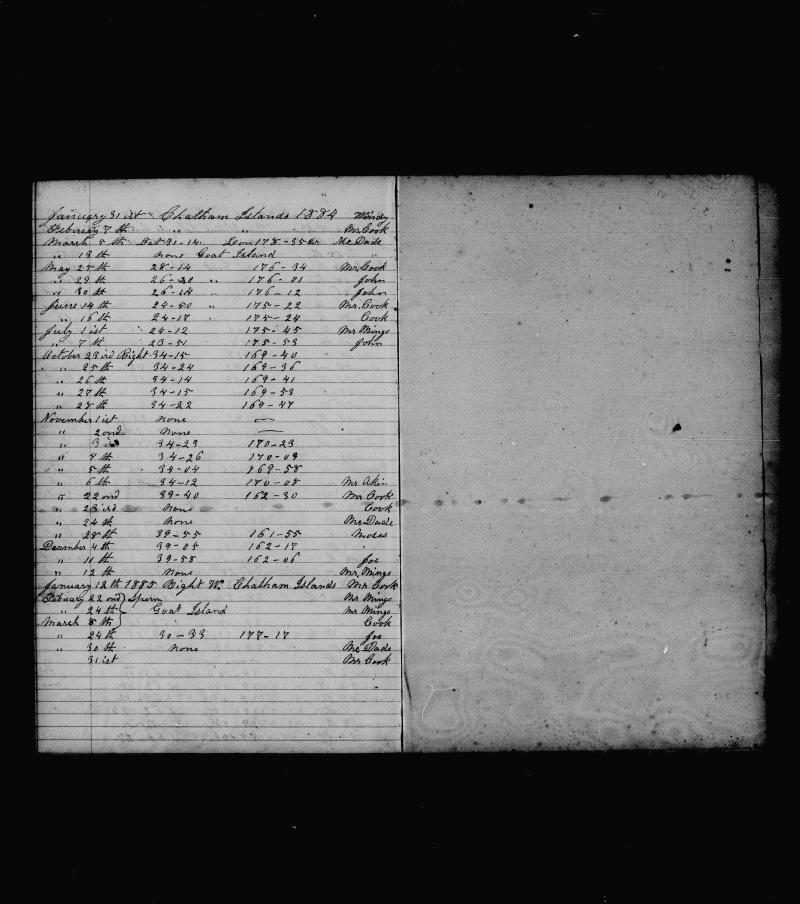 January 31ist Chatham Islands 1884 Windy
Feberary 7th " " Mr. Cook
March 5th Lat 31-14 Lon 178-35 Mc Dade
" 13th none Goat Island "
May 25th 28-14 176-34 Mr. Cook
" 29th 26-30 " 176-01 John
" 30th 26-14 " 176-12 John
June 14th 24-50 " 175-22 Mr. Cook
" 16th 24-17 " 175-24 Cook
July 1ist " 24-12 175-45 Mr Mingo
" 7th 23-51 175-53 John
October 23ird Right 34-15 169-40
" 25th 34-24 169-36
" 26th 34-14 169-41
" 27th 34-15 169-53
" 28th 34-22 169-47
November 1ist none —
" 2ond None —
" 3i 34-23 170-23
" 4th 34-26 170-09
" 5th 34-04 169-58
" 6th 34-12 170-08 Mr Akin
" 22ond 39-40 162-30 Mr Cook
" 23ird None Cook
" 24th None Mc Dade
" 28th 39-55 161-55 Moses
December 4th 39-05 162-17 "
" 11th 39-58 162-06 Joe
" 12th None Mr. Mingo
January 12th 1885 Right W. Chatham Islands Mr Cook
Febuary 22ond Sperm Mr Mingo
" 24th Goat Island Mr Mingo
March 8th Cook
" 24th 30-33 177-17 Joe
" 30th none Mc Dade
31ist Mr Cook